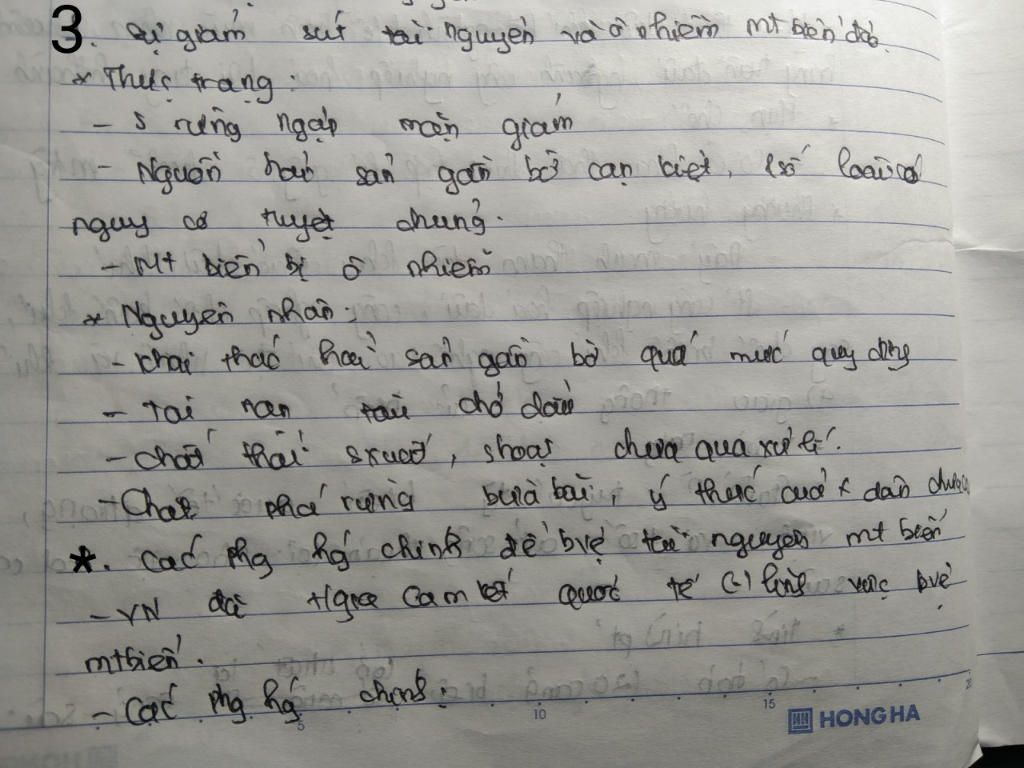 3. Sự giảm sút tài nguyên và ô nhiễm mt biển đảo.
* Thực trạng:
- S rừng ngập mặn giảm
- Nguồn hải sản gần bờ cạn kiệt, 1 số loài có
nguy cơ tuyệt chủng.
- Mt biển bị ô nhiễm
* Nguyên nhân:
- khai thác hải sản gần bờ quá mức quy định
- tai nạn tàu chở dầu
- chất thải sxuất, shoạt chưa qua xử lí.
- Chặt phá rừng bừa bãi, ý thức của dân chưa
*. Các phg hg chính để bvệ tài nguyên mt biển
- VN đã tgia cam kết quốc tế (-) lĩnh vực bvệ
mt biển.
- Các phg hg chính:
5 10 15
HONG HA